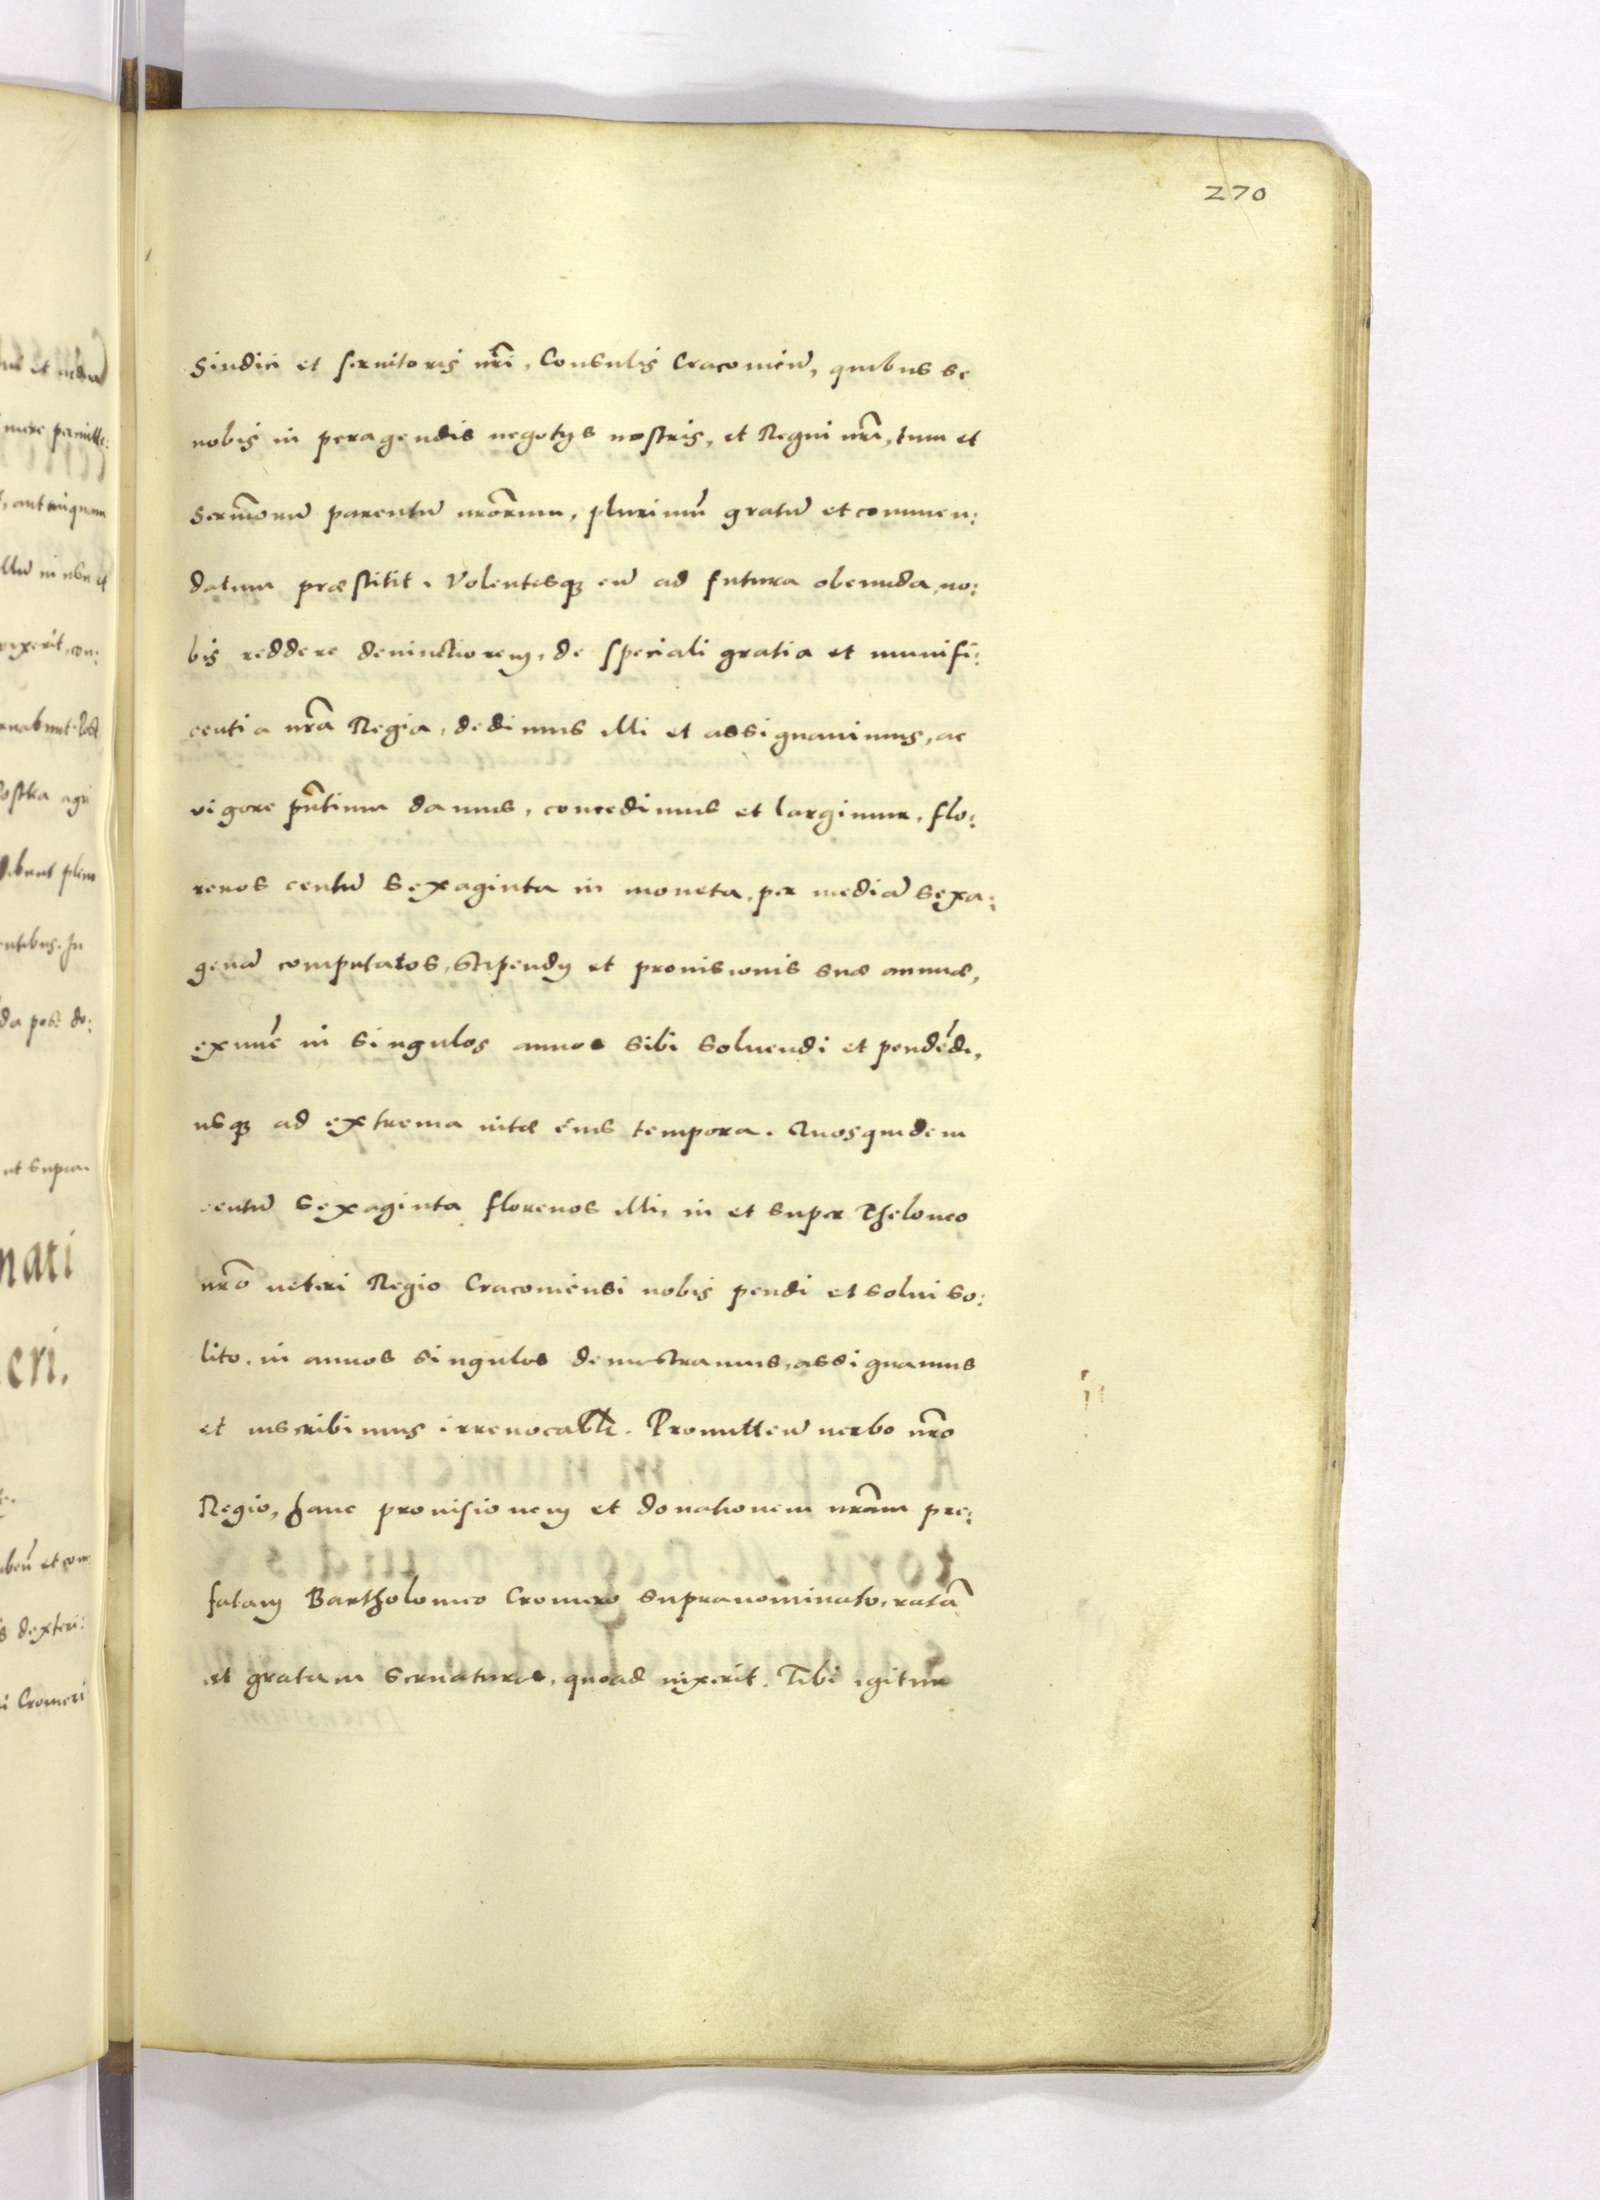 270
Sindici et seruitoris nr̃i, Consulis Cracouien̄, quibus se
nobis in peragendis negotijs nostris, et Regni nr̃i, tum et
Serm̃orū parentū nr̃orum, plurimū gratū et commen:
datum præstitit. Volentesq3 eū ad futura obeunda, no:
bis reddere deuinctiorem, de speciali gratia et munifi:
centia nr̃a Regia, dedimus illi et assignauimus, ac
vigore pñtium damus, concedimus et largimur, flo:
renos centū sexaginta in moneta, per mediā sexa:
genā computatos, stipendij et prouisionis suæ annuæ,
ex nūc in singulos annos sibi soluendi et pendēdi,
usq3 ad extrema uitæ eius tempora. Quosquidem
centū sexaginta florenos illi, in et super Theloneo
nr̃o ueteri Regio Cracouiensi nobis pendi et solui so:
lito, in annos singulos demostramus, assignamus
et inscribimus irreuocablr. Promitten̄ uerbo nr̃o
Regio, hanc prouisionem et donationem nr̃am pre:
fatam Bartholomeo Cromero supranominato, ratā
et gratam seruaturos, quoad uixerit. Tibi igitur